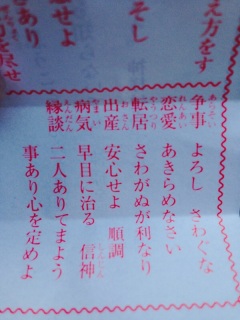 え方をす
そし
せよ
さあり
争事 よろし さわぐな
恋愛 あきらめなさい
転居 さわがぬが利なり
出産 安心せよ 順調
病気 早目に治る 信神
縁談 二人ありてまよう
事あり心を定めよ